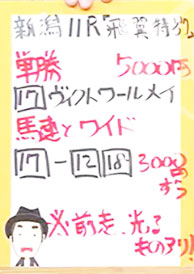 新潟11R『飛翼特別』
単勝 5000円
17 ヴィクトワールメイ
馬連とワイド
17-12 18 3000円
ずつ
※前走、光る
ものアリ!